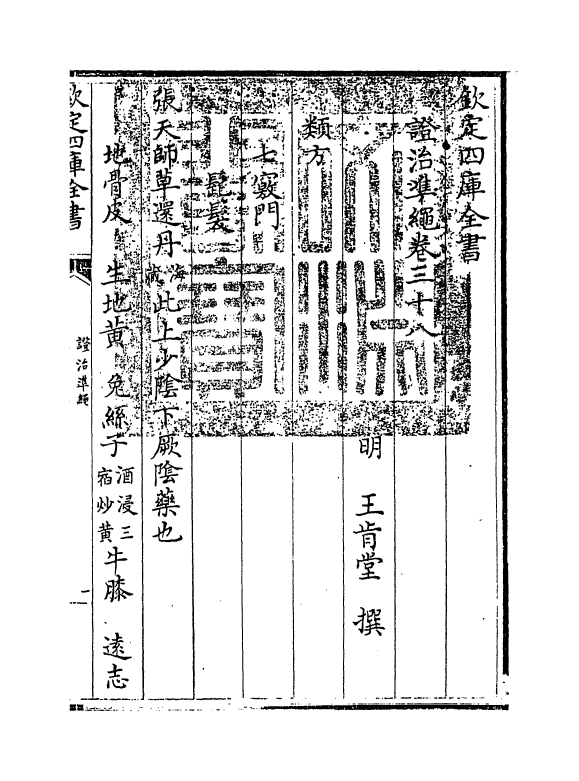 欽定四庫全書
證治準繩卷三十八
明 王肯堂 撰
類方
七竅門
髭髮
張天師草還丹 海藏 此上少陰下厥陰藥也
地骨皮 生地黃 兔絲子 酒浸三宿炒黄 牛膝 遠志
欽定四庫全書
證治準繩
一